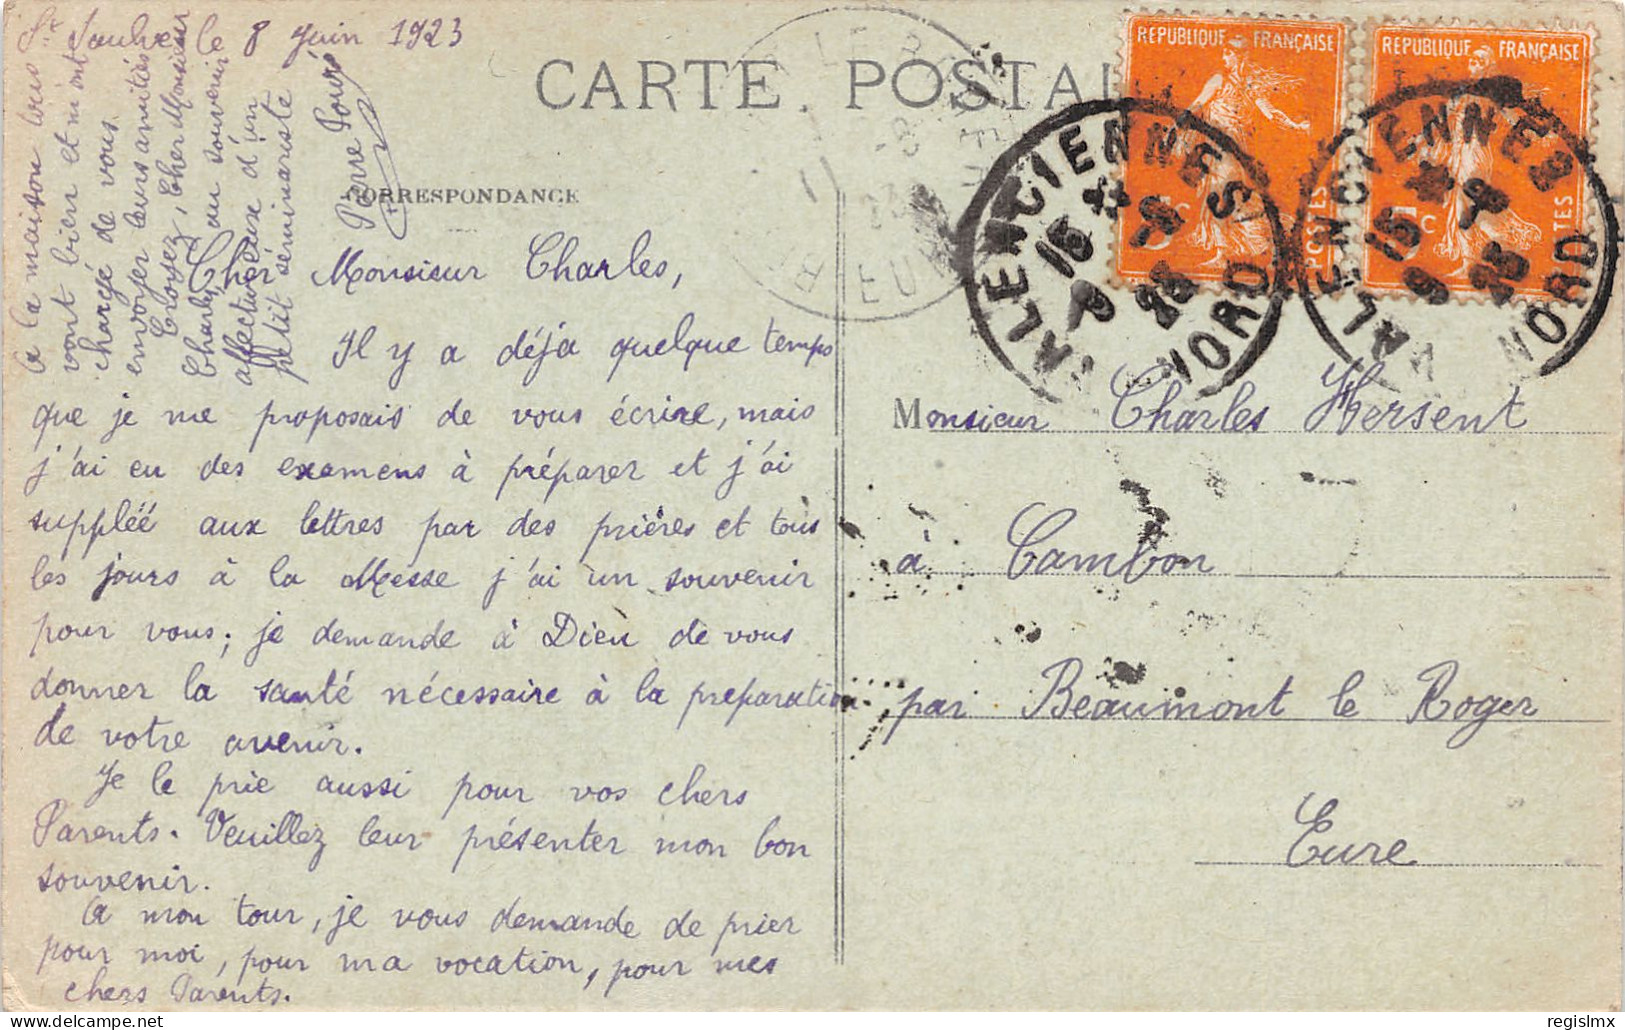 St Saulve le 8 Juin 1923
CARTE POSTALE
CORRESPONDANCE
Cher Monsieur Charles,
Il y a déja quelque temps
que je me proposais de vous écrire, mais
j'ai eu des examens à préparer et j'ai
suppléé aux lettres par des prières et tous
les jours à la Messe j'ai un souvenir
pour vous; je demande à Dieu de vous
donner la santé nécessaire à la preparation
de votre avenir.
Je le prie aussi pour vos chers
Parents. Veuillez leur présenter mon bon
souvenir.
A mon tour, je vous demande de prier
pour moi, pour ma vocation, pour mes
chers Parents.
A la maison tous
vont bien et m'ont
chargé de vous
envoyer leurs amitiés
Croyez, Cher Monsieur
Charles, au souvenir
affectueux d'un
petit séminariste
Pierre
Monsieur Charles Hersent
à Cambon
par Beaumont le Roger
Eure
REPUBLIQUE FRANÇAISE
5c POSTES
REPUBLIQUE FRANÇAISE
5c POSTES
VALENCIENNES
NORD
VALENCIENNES
NORD
EURE
delcampe.net
regislmx